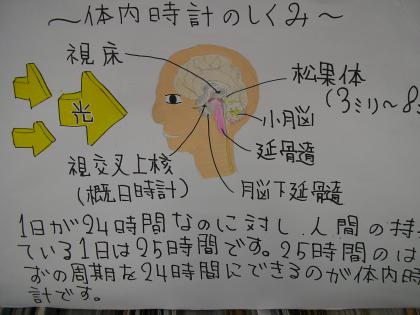 ～体内時計のしくみ～
視床
松果体
(3ミリ～8
光
小脳
延骨髄
視交叉上核
(概日時計)
脳下延骨髄
1日が24時間なのに対し、人間の持
ている1日は25時間です。25時間のは
ずの周期を24時間にできるのが体内時
計です。